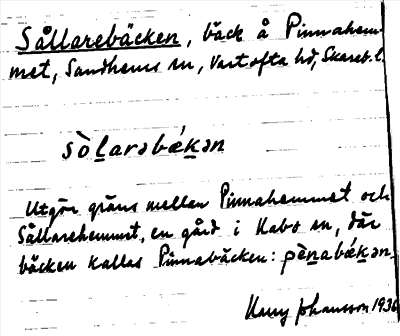 Sållarebäcken, bäck å Pinnahem-
met, Sandhems sn, Vartofta hd, Skarab. l.
sòlarəbǽkən
Utgör gräns mellan Pinnahemmet och
Sållarehemmet, en gård i Kabo sn, där
bäcken kallas Pinnabäcken: pènabǽkən.
Harry Johansson 1936